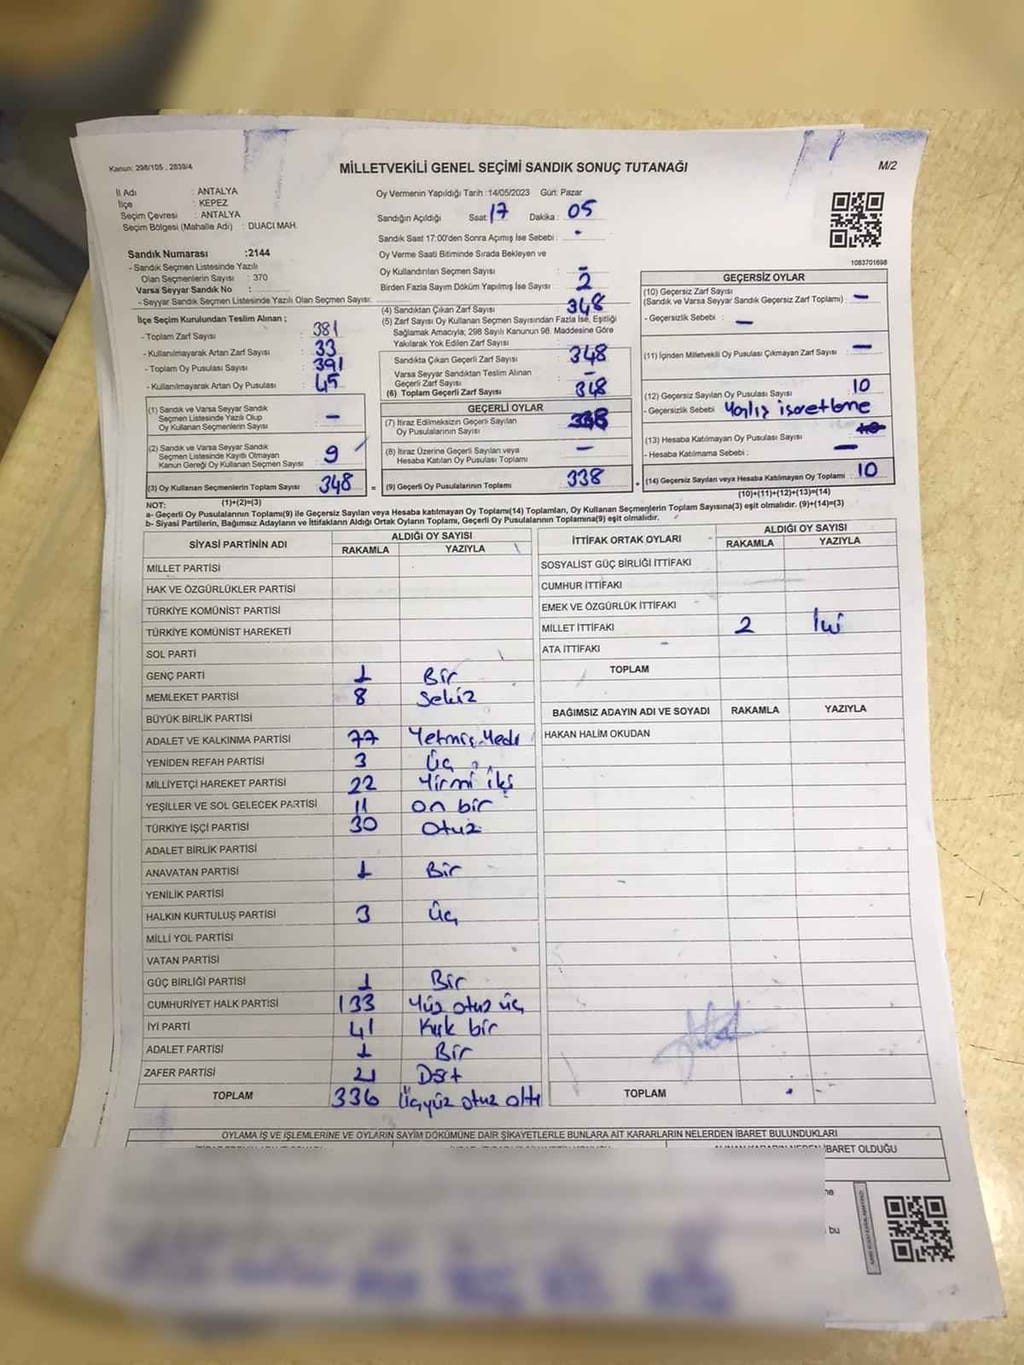 Kanun: 298/105 , 2839/4
MİLLETVEKİLİ GENEL SEÇİMİ SANDIK SONUÇ TUTANAĞI
M/2
İl Adı : ANTALYA
İlçe : KEPEZ
Seçim Çevresi : ANTALYA
Seçim Bölgesi (Mahalle Adı) : DUACI MAH.
Sandık Numarası :2144
- Sandık Seçmen Listesinde Yazılı
Olan Seçmenlerin Sayısı : 370
Varsa Seyyar Sandık No :
- Seyyar Sandık Seçmen Listesinde Yazılı Olan Seçmen Sayısı:
Oy Vermenin Yapıldığı Tarih :14/05/2023 Gün: Pazar
Sandığın Açıldığı Saat: 17 Dakika : 05
Sandık Saat 17:00'den Sonra Açımış İse Sebebi : -
Oy Verme Saati Bitiminde Sırada Bekleyen ve
Oy Kullandırılan Seçmen Sayısı -
Birden Fazla Sayım Döküm Yapılmış İse Sayısı 2
1083701698
İlçe Seçim Kurulundan Teslim Alınan ;
- Toplam Zarf Sayısı 381
- Kullanılmayarak Artan Zarf Sayısı : 33
- Toplam Oy Pusulası Sayısı : 391
- Kullanılmayarak Artan Oy Pusulası : 45
(1) Sandık ve Varsa Seyyar Sandık
Seçmen Listesinde Yazılı Olup
Oy Kullanan Seçmenlerin Sayısı -
(2) Sandık ve Varsa Seyyar Sandık
Seçmen Listesinde Kayıtlı Olmayan
Kanun Gereği Oy Kullanan Seçmen Sayısı 9
(3) Oy Kullanan Seçmenlerin Toplam Sayısı 348
(1)+(2)=(3)
(4) Sandıktan Çıkan Zarf Sayısı 348
(5) Zarf Sayısı Oy Kullanan Seçmen Sayısından Fazla İse, Eşitliği
Sağlamak Amacıyla; 298 Sayılı Kanunun 98. Maddesine Göre
Yakılarak Yok Edilen Zarf Sayısı
Sandıkta Çıkan Geçerli Zarf Sayısı 348
Varsa Seyyar Sandıktan Teslim Alınan
Geçerli Zarf Sayısı -
(6) Toplam Geçerli Zarf Sayısı 348
GEÇERLİ OYLAR
(7) İtiraz Edilmeksizin Geçerli Sayılan
Oy Pusulalarının Sayısı 338
(8) İtiraz Üzerine Geçerli Sayılan veya
Hesaba Katılan Oy Pusulası Toplamı -
= (9) Geçerli Oy Pusulalarının Toplamı 338
GEÇERSİZ OYLAR
(10) Geçersiz Zarf Sayısı
(Sandık ve Varsa Seyyar Sandık Geçersiz Zarf Toplamı) : -
- Geçersizlik Sebebi : -
(11) İçinden Milletvekili Oy Pusulası Çıkmayan Zarf Sayısı -
(12) Geçersiz Sayılan Oy Pusulası Sayısı 10
- Geçersizlik Sebebi Yanlış isaretleme
(13) Hesaba Katılmayan Oy Pusulası Sayısı
- Hesaba Katılmama Sebebi : -
(14) Geçersiz Sayılan veya Hesaba Katılmayan Oy Toplamı 10
(10)+(11)+(12)+(13)=(14)
NOT:
a- Geçerli Oy Pusulalarının Toplamı(9) ile Geçersiz Sayılan veya Hesaba Katılmayan Oy Toplamı(14) Toplamları, Oy Kullanan Seçmenlerin Toplam Sayısına(3) eşit olmalıdır. (9)+(14)=(3)
b- Siyasi Partilerin, Bağımsız Adayların ve İttifakların Aldığı Ortak Oyların Toplamı, Geçerli Oy Pusulalarının Toplamına(9) eşit olmalıdır.
SİYASİ PARTİNİN ADI ALDIĞI OY SAYISI
RAKAMLA YAZIYLA
MİLLET PARTİSİ
HAK VE ÖZGÜRLÜKLER PARTİSİ
TÜRKİYE KOMÜNİST PARTİSİ
TÜRKİYE KOMÜNİST HAREKETİ
SOL PARTİ
GENÇ PARTİ 1 Bir
MEMLEKET PARTİSİ 8 Sekiz
BÜYÜK BİRLİK PARTİSİ
ADALET VE KALKINMA PARTİSİ 77 Yetmiş Yedi
YENİDEN REFAH PARTİSİ 3 Üç
MİLLİYETÇİ HAREKET PARTİSİ 22 Yirmi iki
YEŞİLLER VE SOL GELECEK PARTİSİ 11 on bir
TÜRKİYE İŞÇİ PARTİSİ 30 Otuz
ADALET BİRLİK PARTİSİ
ANAVATAN PARTİSİ 1 Bir
YENİLİK PARTİSİ
HALKIN KURTULUŞ PARTİSİ 3 Üç
MİLLİ YOL PARTİSİ
VATAN PARTİSİ
GÜÇ BİRLİĞİ PARTİSİ 1 Bir
CUMHURİYET HALK PARTİSİ 133 Yüz otuz üç
İYİ PARTİ 41 Kırk bir
ADALET PARTİSİ 1 Bir
ZAFER PARTİSİ 4 Dört
TOPLAM 336 Üçyüz otuz altı
İTTİFAK ORTAK OYLARI ALDIĞI OY SAYISI
RAKAMLA YAZIYLA
SOSYALİST GÜÇ BİRLİĞİ İTTİFAKI
CUMHUR İTTİFAKI
EMEK VE ÖZGÜRLÜK İTTİFAKI
MİLLET İTTİFAKI 2 İki
ATA İTTİFAKI
TOPLAM
BAĞIMSIZ ADAYIN ADI VE SOYADI RAKAMLA YAZIYLA
HAKAN HALİM OKUDAN
TOPLAM
OYLAMA İŞ VE İŞLEMLERİNE VE OYLARIN SAYIM DÖKÜMÜNE DAİR ŞİKAYETLERLE BUNLARA AİT KARARLARIN NELERDEN İBARET BULUNDUKLARI
İBARET OLDUĞU
bu